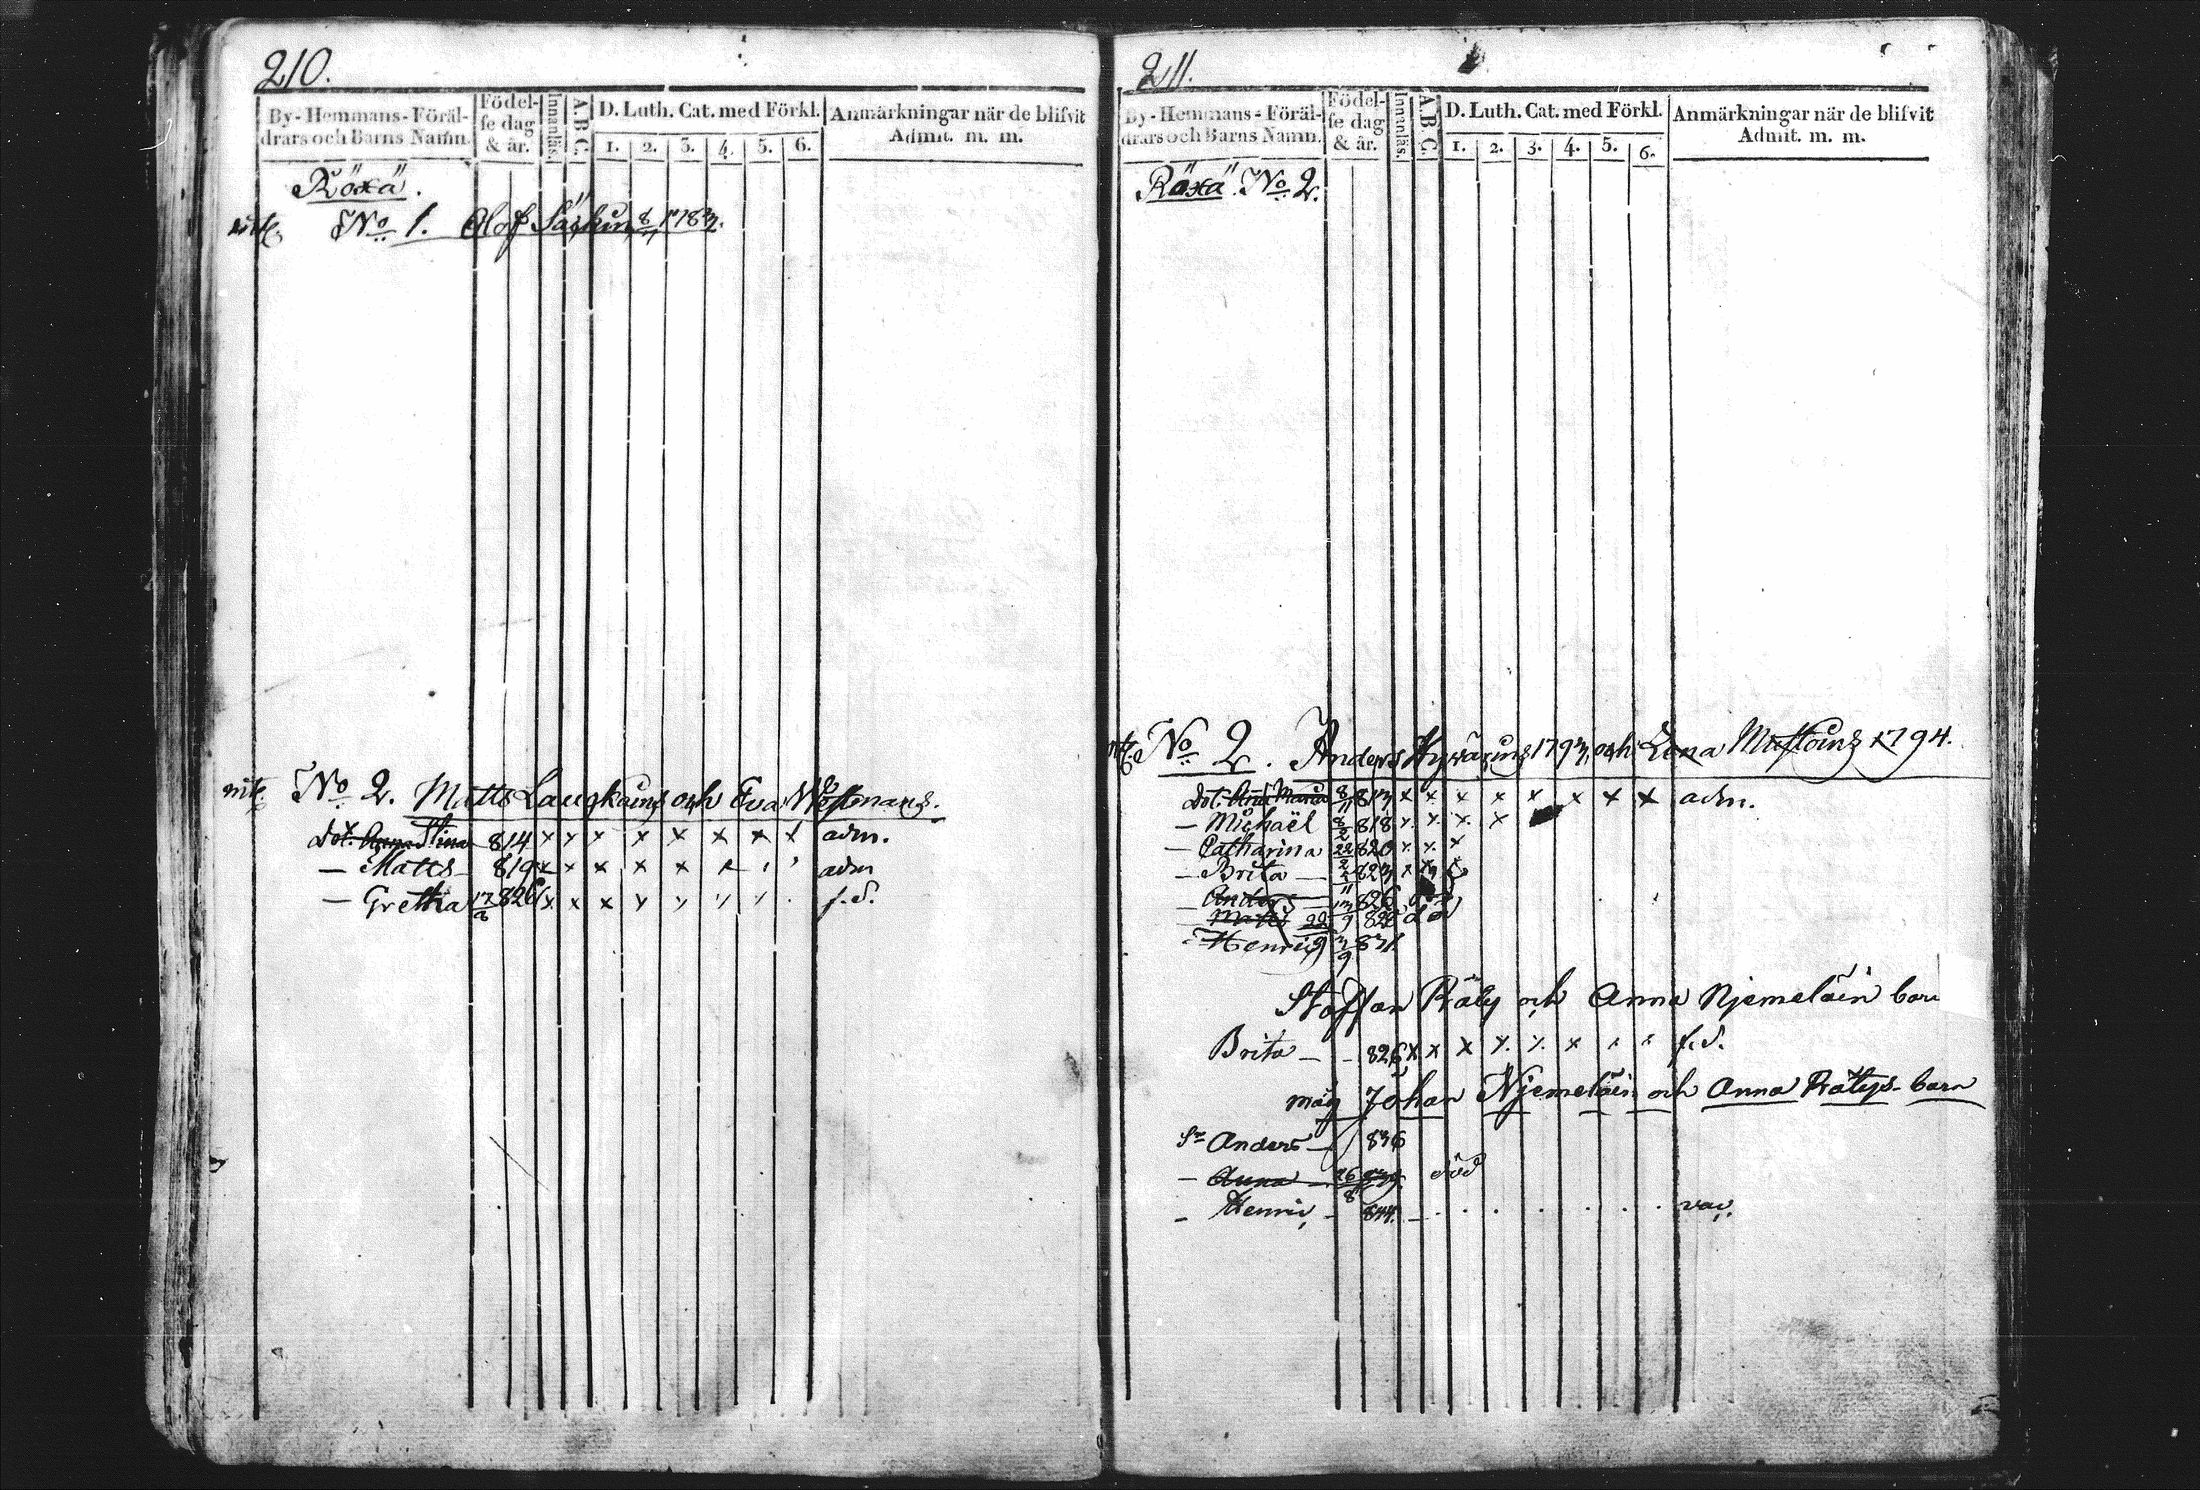 210.
By-Hemmans-Föräl-
drars och Barns Namn.
Födel-
se dag
& år.
Innanläs.
A.B.C.
D. Luth. Cat. med Förkl.
1. 2. 3. 4. 5. 6.
Anmärkningar när de blifvit
Admit. m. m.
Röxä.
No 1. Olof
No 2. Matts Laugkains och Eva
dot. Anna Stina 814 x x x x x x x x adm.
— Matts — 819 x x x x x x adm
— Gretha 17/2 826 x x x x f.d.
211.
By-Hemmans-Föräl-
drars och Barns Namn.
Födel-
se dag
& år.
Innanläs.
A.B.C.
D. Luth. Cat. med Förkl.
1. 2. 3. 4. 5. 6.
Anmärkningar när de blifvit
Admit. m. m.
Röxä. No 2.
No 2. Anders och Lena 1794.
dot. Anna Maria 8/11 x x x x x x x x adm.
— Michaël 8/2 818 x x x x
— Catharina 22/2 820 x x x
— Brita —
— Anders 826
— Matts 828 död
— Henric
Staffan Räty och Anna Njemeläin barn
Brita — — 826 x x x x x x f.d.
måg Johan Njemeläin och Anna Rätys barn
Sn Anders — 836
— Anna — 26/8 död
— Henric — 844. — vac.